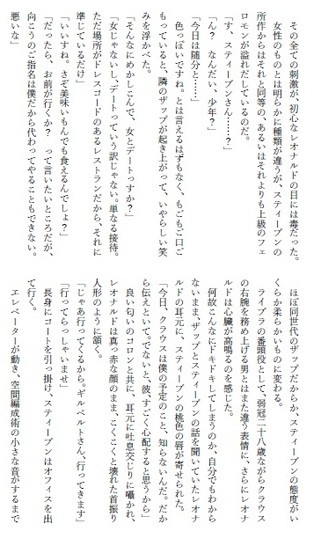 その全ての刺激が、初心なレオナルドの目には毒だった。
女性のものとは明らかに種類が違うが、スティーブンの
所作からはそれと同等の、あるいはそれよりも上級のフェ
ロモンが溢れだしているのだ。
「す、スティーブンさん……？」
「ん？　なんだい、少年？」
「今日は随分と……」
色っぽいですね。とは言えるはずもなく、もごもご口ご
もっていると、隣のザップが起き上がって、いやらしい笑
みを浮かべた。
「そんなにめかしこんで、女とデートっすか？」
「女じゃないし、デートっていう訳じゃない。単なる接待。
ただ場所がドレスコードのあるレストランだから、それに
準じているだけ」
「いいすね。さぞ美味いもんでも食えるんでしょ？」
「だったら、お前が行くか？　って言いたいところだが、
向こうのご指名は僕だから代わってやることもできない。
悪いな」
ほぼ同世代のザップだからか、スティーブンの態度がい
くらか柔らかいものに変わる。
ライブラの番頭役として、弱冠二十八歳ながらクラウス
の右腕を務め上げる男とはまた違う表情に、さらにレオナ
ルドは心臓が高鳴るのを感じた。
何故こんなにドキドキしてしまうのか、自分でもわから
ないまま、ザップとスティーブンの話を聞いていたレオナ
ルドの耳元に、スティーブンの桃色の唇が寄せられた。
「今日、クラウスは僕の予定のこと、知らないんだ。だか
ら伝えといて。でないと、彼、すごく心配すると思うから」
良い匂いのコロンと共に、耳元に吐息交じりに囁かれ、
レオナルドは真っ赤な顔のまま、こくこくと壊れた首振り
人形のように頷く。
「じゃあ行ってくるから。ギルベルトさん、行ってきます」
「行ってらっしゃいませ」
長身にコートを引っ掛け、スティーブンはオフィスを出
て行く。
エレベーターが動き、空間編成術の小さな音がするまで